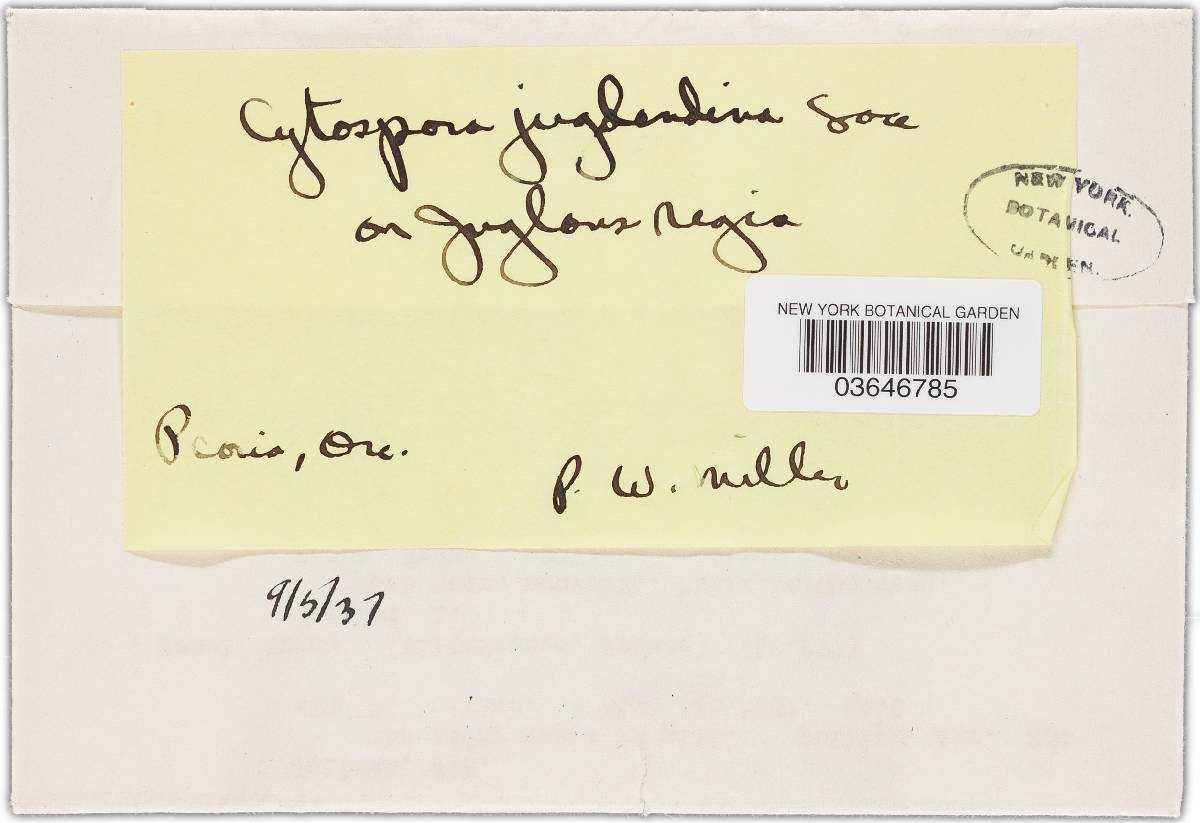 Cytospora juglandina Sacc
on Juglans regia
NEW YORK
BOTANICAL
GARDEN.
NEW YORK BOTANICAL GARDEN
03646785
Peoria, Ore.
P. W. Miller
9/5/37